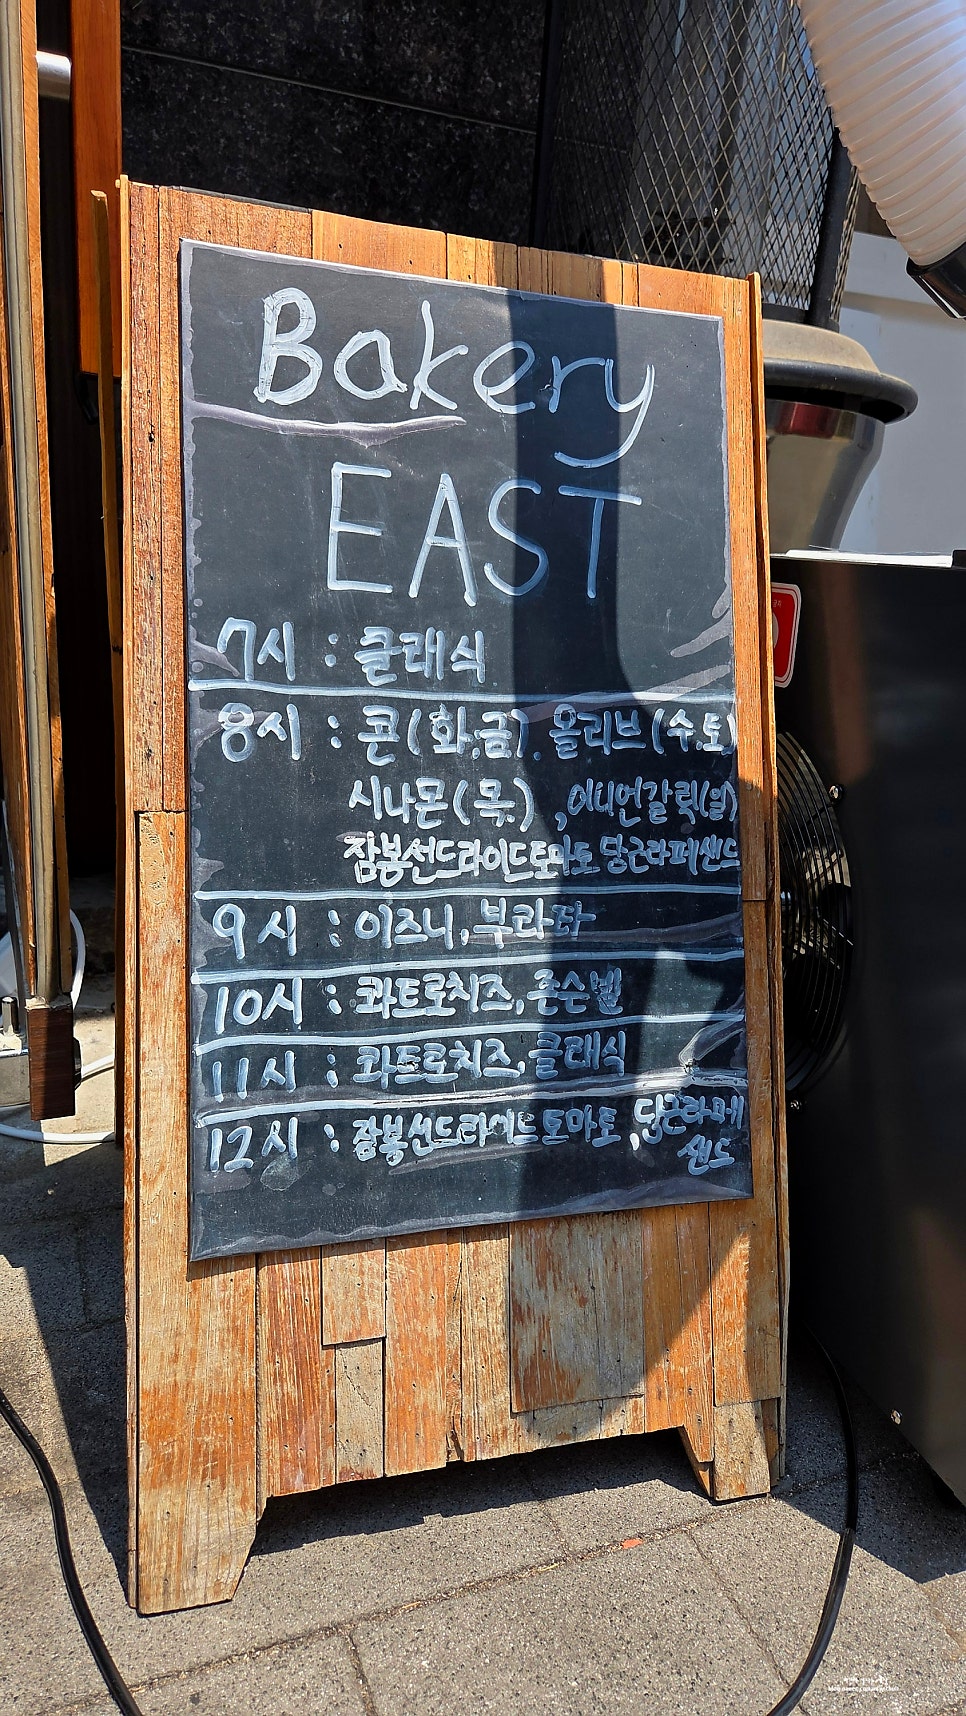 Bakery
EAST
7시 : 클래식
8시 : 콘(화.금). 올리브(수.토)
시나몬(목.), 어니언갈릭(일)
잠봉선드라이드토마토 당근라페샌드
9시 : 이즈니, 부라타
10시 : 콰트로치즈, 존슨벨
11시 : 콰트로치즈, 클래식
12시 : 잠봉선드라이드토마토, 당근라페
샌드